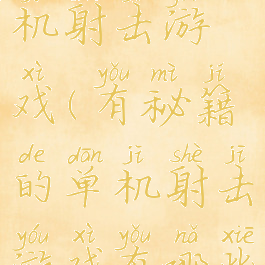 机射击游
xì yǒu mì jí
戏(有秘籍
de dān jī shè jī
的单机射击
yóu xì yǒu nǎ xiē
游戏有哪些